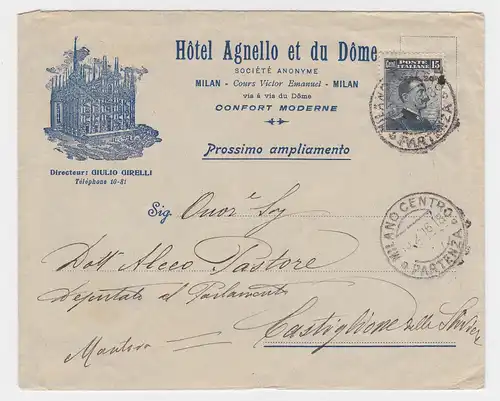 Hôtel Agnello et du Dôme
SOCIÉTÉ ANONYME
MILAN - Cours Victor Emanuel - MILAN
vis à vis du Dôme
CONFORT MODERNE
Prossimo ampliamento
POSTE ITALIANE
Cent. 15
MILANO PARTENZA
Directeur: GIULIO GIRELLI
Téléphone 10-81
MILANO CENTRO
PARTENZA
Sig. Onor.e
Dott Alceo Pastore
Deputato al Parlamento
Castiglione delle Stiviere
Mantova